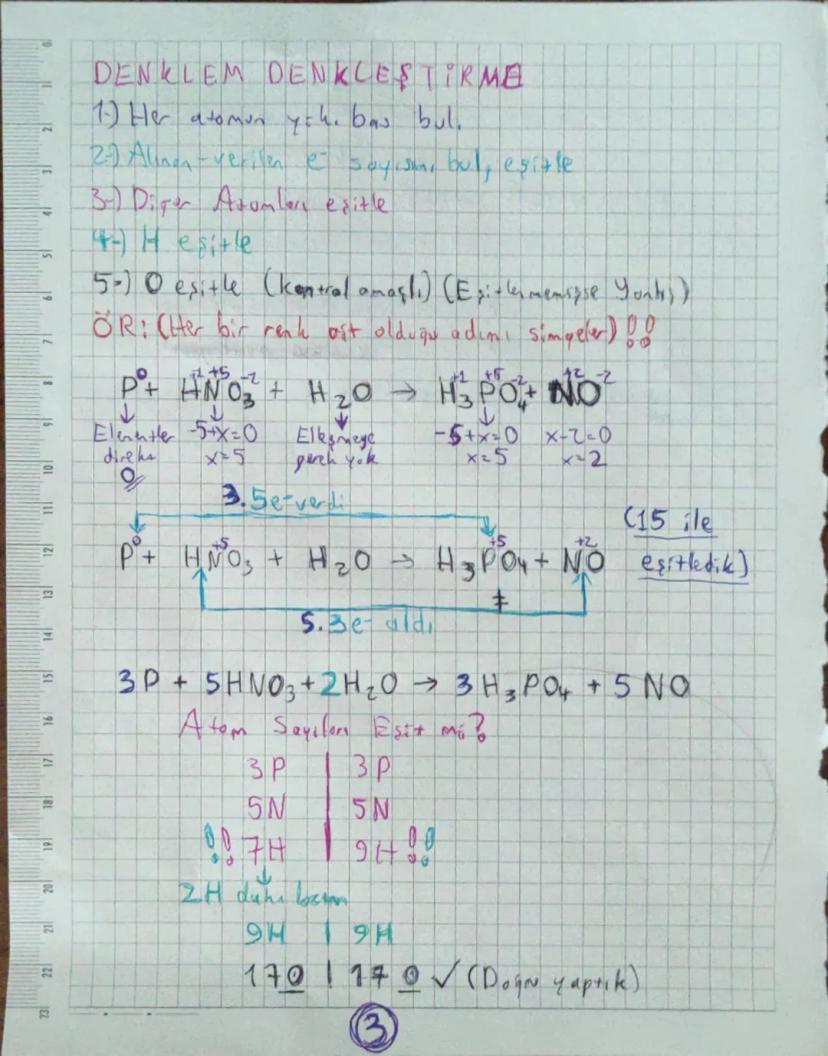 DENKLEM DENKLEŞTİRME
1-) Her atomun yük. bas bul.
2-) Alınan-verilen e⁻ sayısını bul, eşitle
3-) Diğer Atomları eşitle
4-) H eşitle
5-) O eşitle (Kontrol amaçlı) (Eşitlenmemişse Yanlış)
ÖR: (Her bir renk ait olduğu adımı simgeler) !!
P⁰ + H⁺¹N⁺⁵O₃⁻² + H₂O → H₃⁺¹P⁺⁵O₄⁻² + N⁺²O⁻²
Elementler -5+x=0 -5+x=0 x-2=0
direkt x=5 gerek yok x=5 x=2
0
3.5e⁻verdi
(15 ile
P⁰ + HN⁺⁵O₃ + H₂O → H₃P⁺⁵O₄ + N⁺²O eşitledik)
5.3e⁻ aldı
3P + 5HNO₃ + 2H₂O → 3H₃PO₄ + 5NO
Atom Sayıları Eşit mi?
3P | 3P
5N | 5N
!! 7H | 9H !!
2H daha lazım
9H | 9H
17O | 17O ✓ (Doğru yaptık)
3